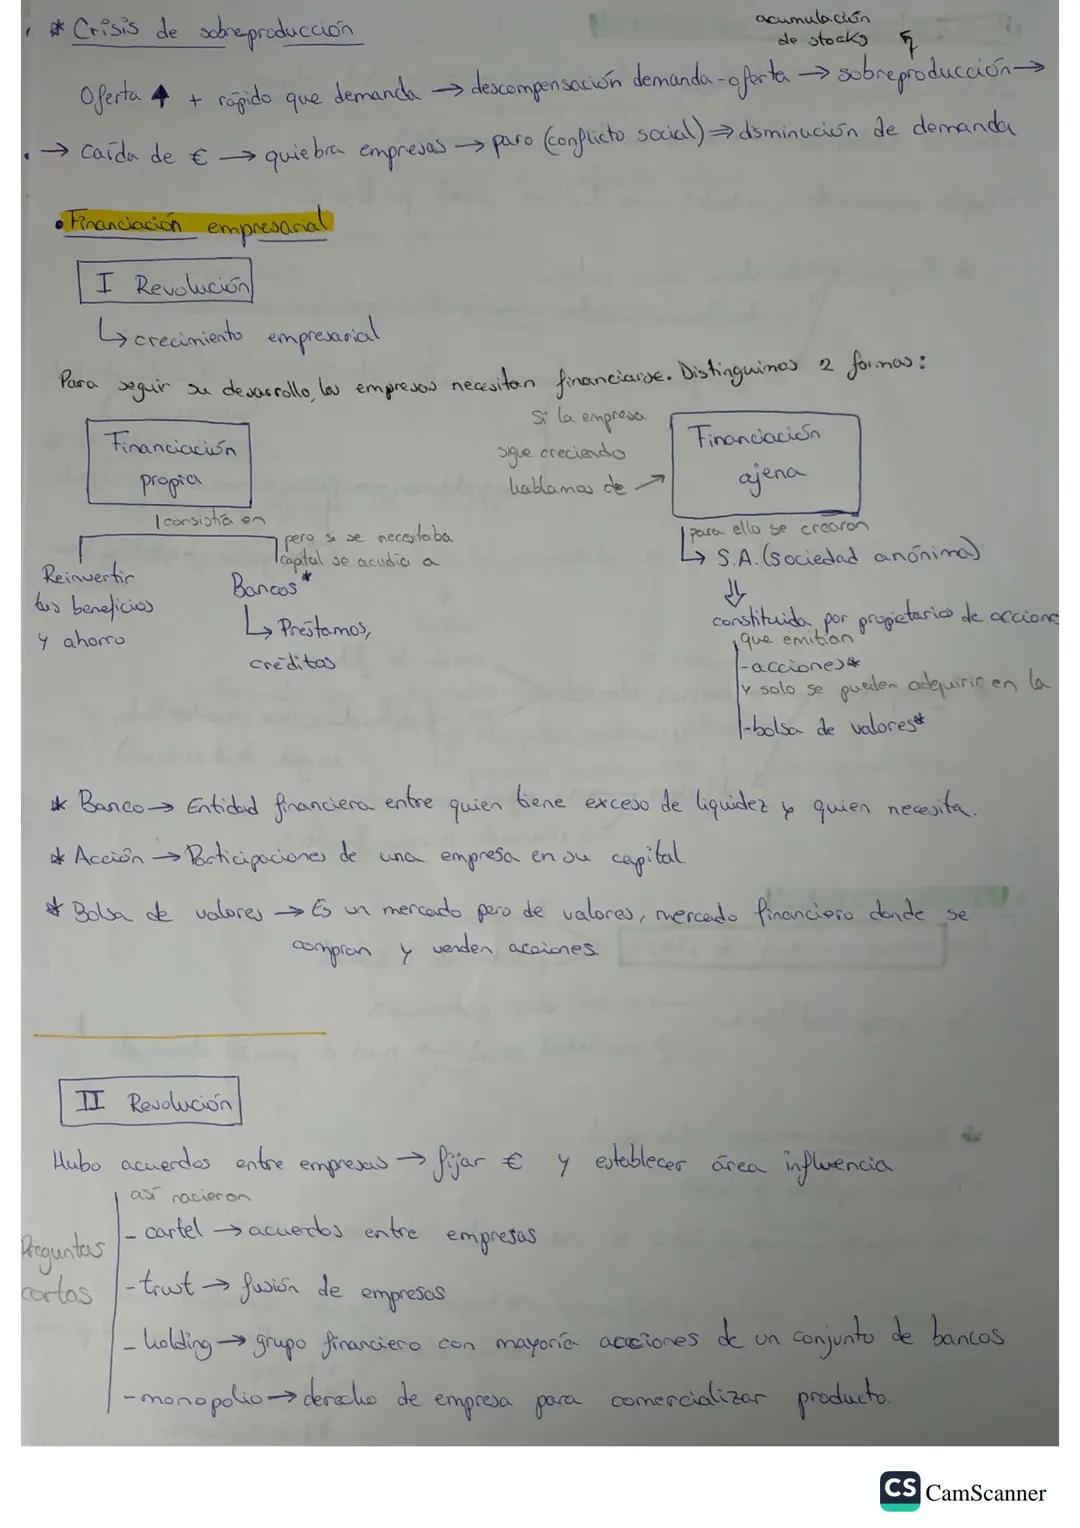 * Crisis de sobreproducción
acumulación
de stocks
Oferta ↑ + rápido que demanda → descompensación demanda-oferta → sobreproducción →
→ caída de € → quiebra empresas → paro (conflicto social) ⇒ disminución de demanda
• Financiación empresarial
I Revolución
↳ crecimiento empresarial
Para seguir su desarrollo, las empresas necesitan financiarse. Distinguimos 2 formas:
Financiación
propia
Si la empresa
sigue creciendo
hablamos de →
Financiación
ajena
consistía en
Reinvertir
tus beneficios
y ahorro
pero si se necesitaba
capital se acudía a
Bancos*
↳ Préstamos,
créditos
para ello se crearon
↳ S.A. (sociedad anónima)
⇓
constituida por propietarios de accione
que emitían
- acciones*
y solo se pueden adequirir en la
- bolsa de valores*
* Banco → Entidad financiera entre quien tiene exceso de liquidez y quien necesita.
* Acción → Participaciones de una empresa en su capital.
* Bolsa de valores → Es un mercado pero de valores, mercado financiero donde se
compran y venden acciones.
II Revolución
Hubo acuerdos entre empresas → fijar € y establecer área influencia
así nacieron
Preguntas
cortas
- cartel → acuerdos entre empresas
- trust → fusión de empresas
- holding → grupo financiero con mayoría acciones de un conjunto de bancos
- monopolio → derecho de empresa para comercializar producto.
CS CamScanner